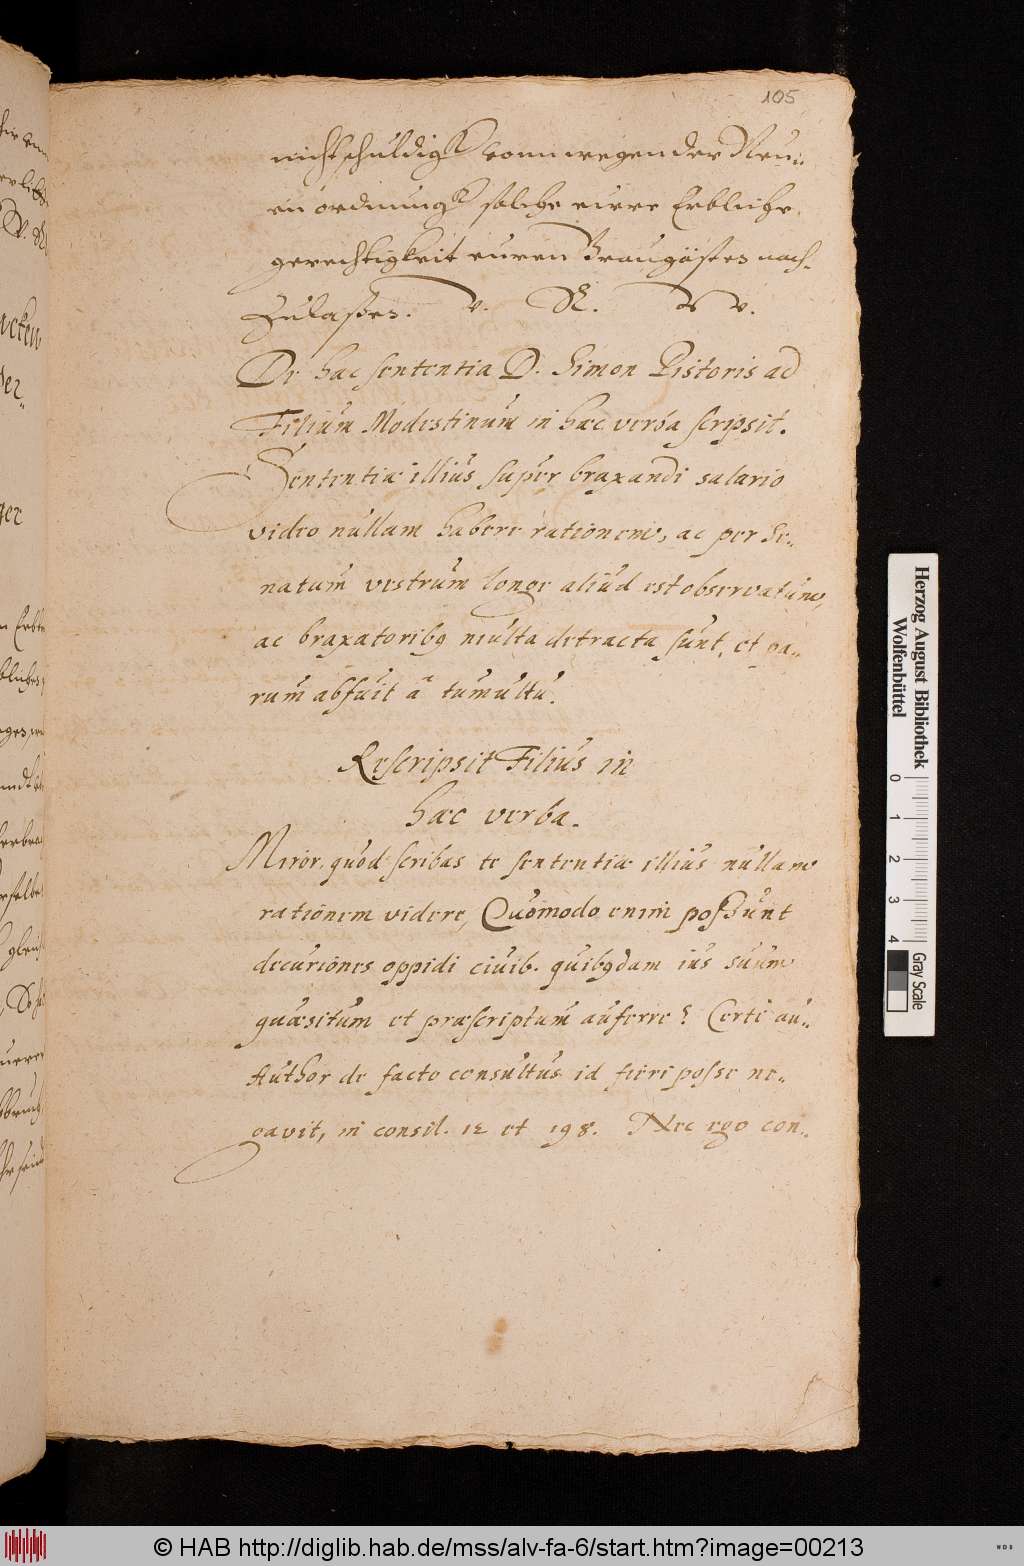 105
nicht schuldigk vonn wegen der Neu-
en ordnungk solche eure Erbliche
gerechtigkeit euren Braugästen nach-
Zulaßen. v. R. w.
De hac sententia D. Simon Pistoris ad
Filium Modestinum in hæc verba scripsit.
Sententiæ illius super braxandi salario
video nullam habere rationem, ac per Se-
natum vestrum longe aliud est observatum,
ac braxatoribq multa detracta sunt, et pa-
rum abfuit à tumultu.
Rescripsit Filius in
hæc verba.
Miror quod scribas te sententiæ illius nullam
rationem videre, Quomodo enim possunt
decuriones oppidi civib. quibqdam ius suum
quæsitum et præscriptum auferre? Certe au-
Author de facto consultus id fieri posse ne-
gavit, in consil. 12 et 198. Nec ego con-
Herzog August Bibliothek
Wolfenbüttel
0 1 2 3 4
Gray Scale
© HAB http://diglib.hab.de/mss/alv-fa-6/start.htm?image=00213